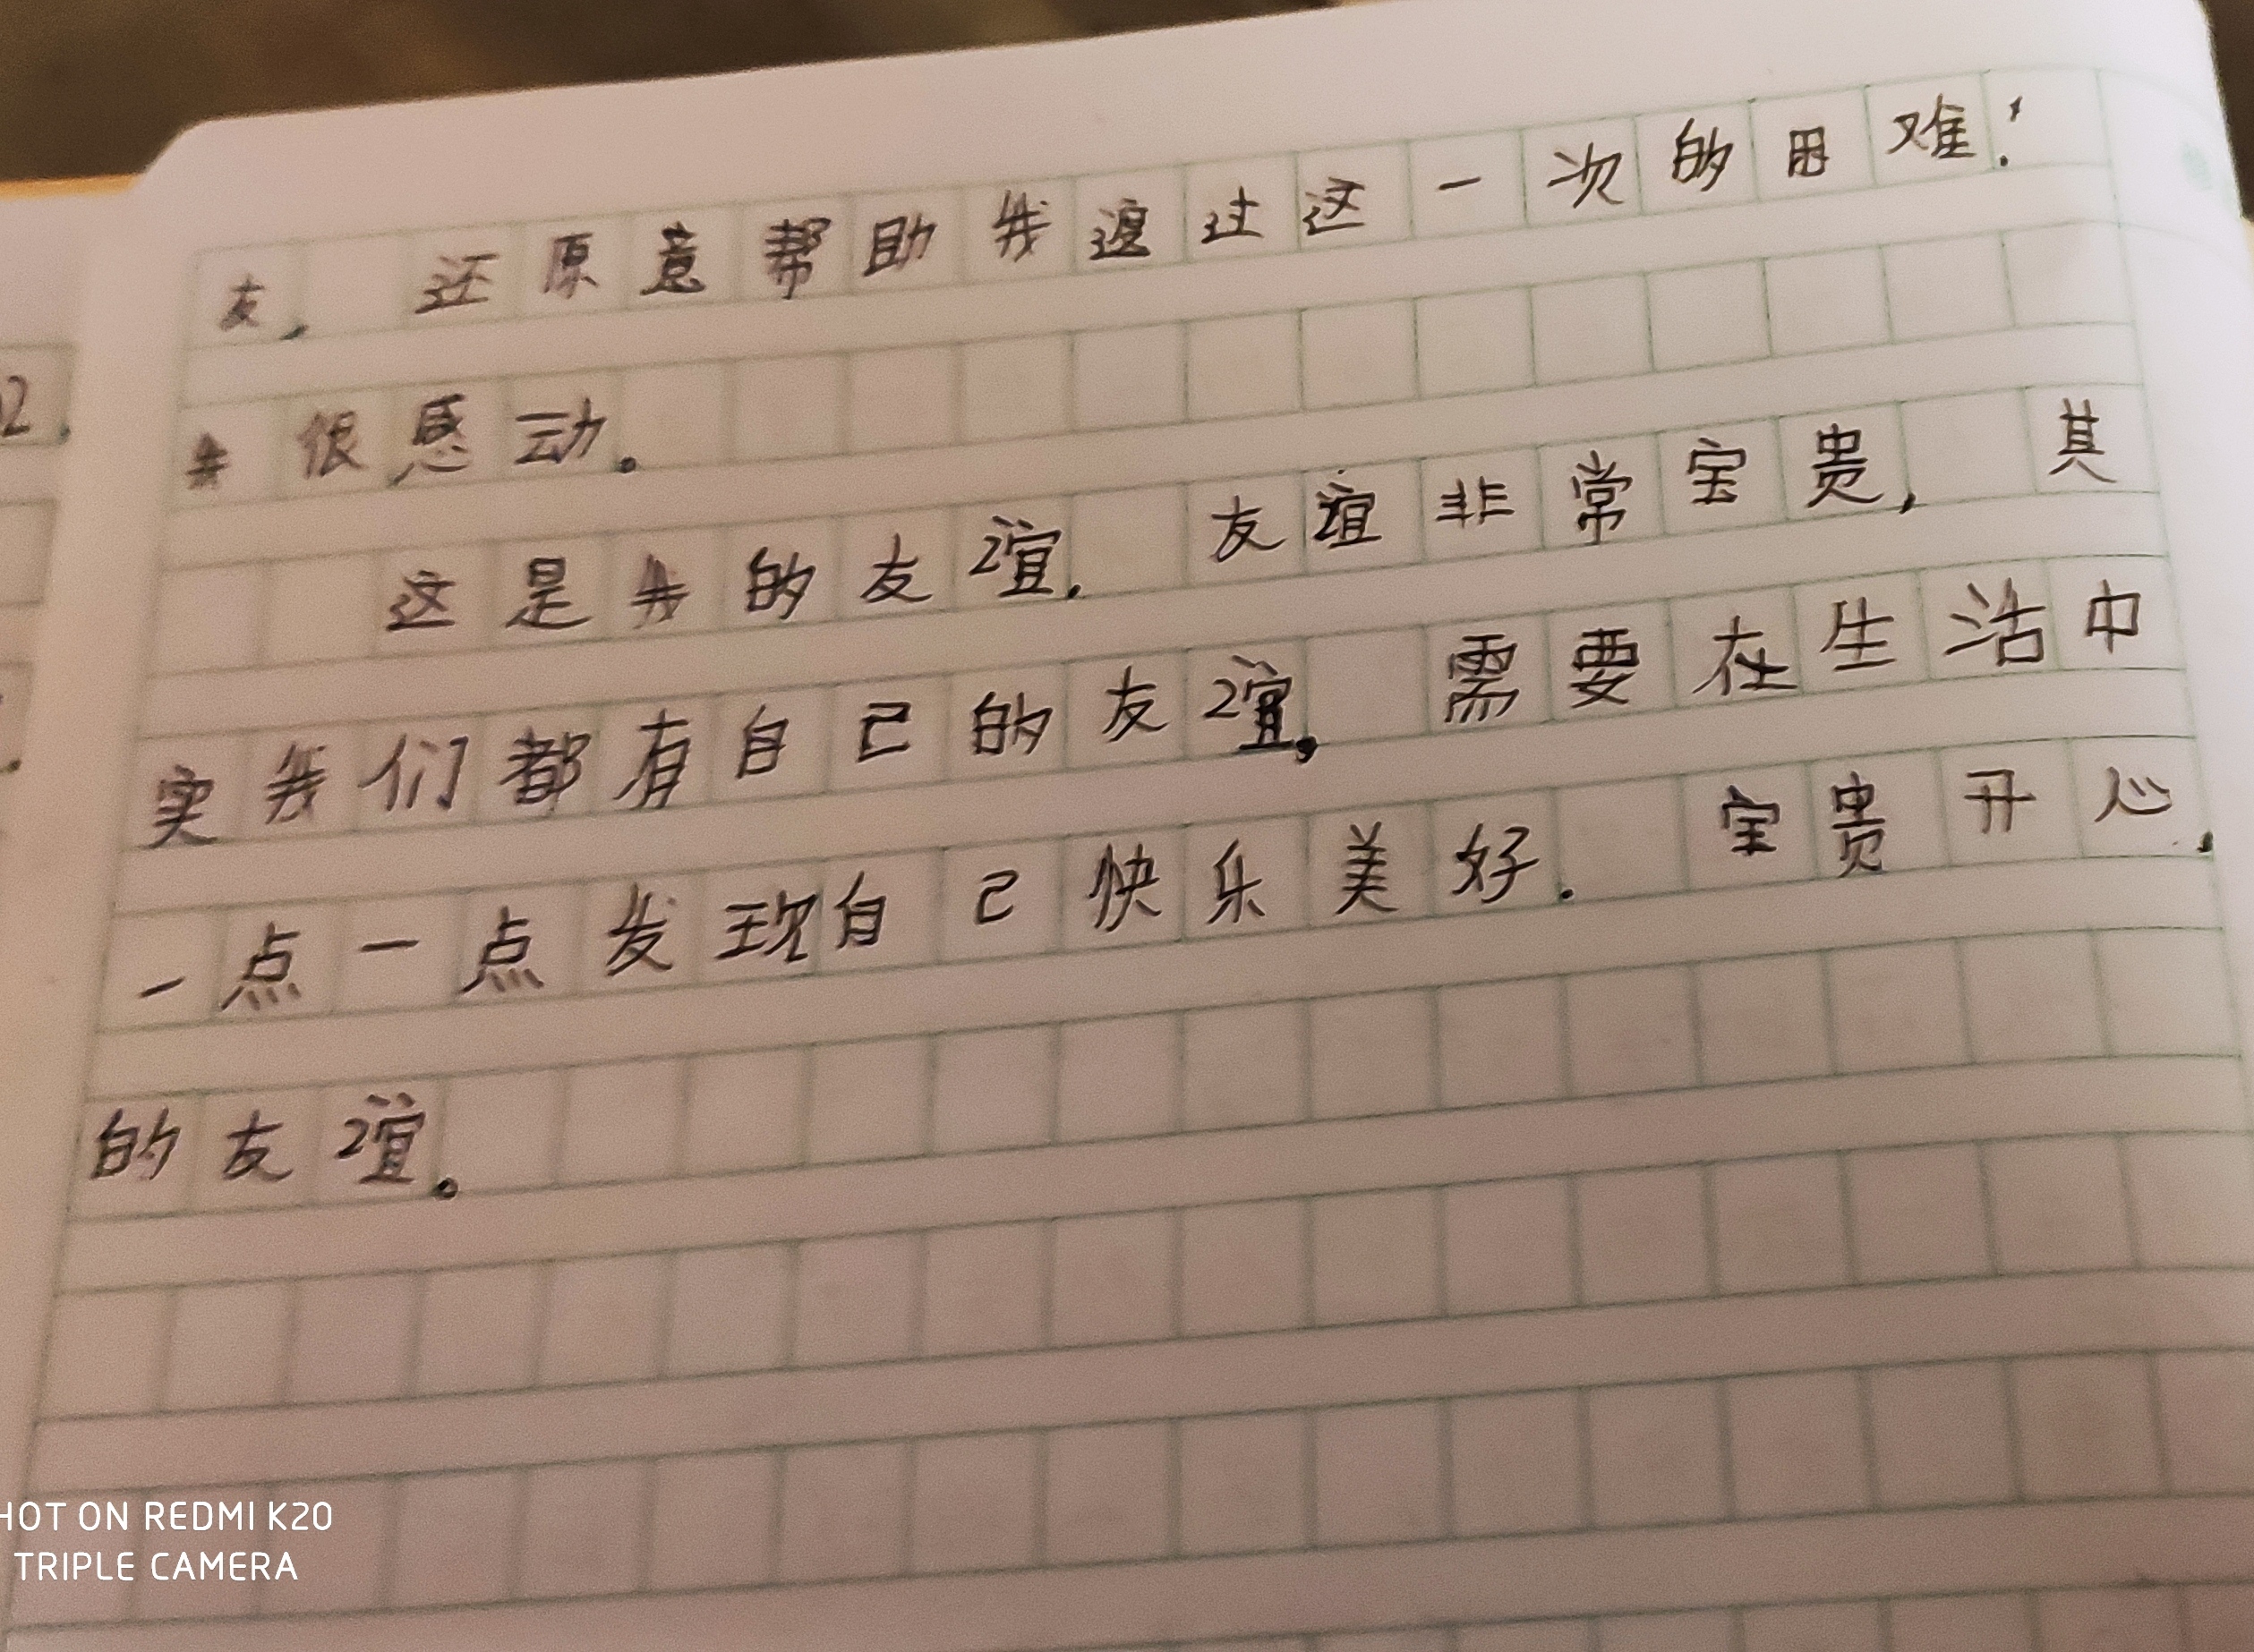 友，还原意帮助我渡过这一次的困难！
我很感动。
这是我的友谊，友谊非常宝贵，其
实我们都有自己的友谊。需要在生活中
一点一点发现自己快乐美好，宝贵开心，
的友谊。
HOT ON REDMI K20
TRIPLE CAMERA